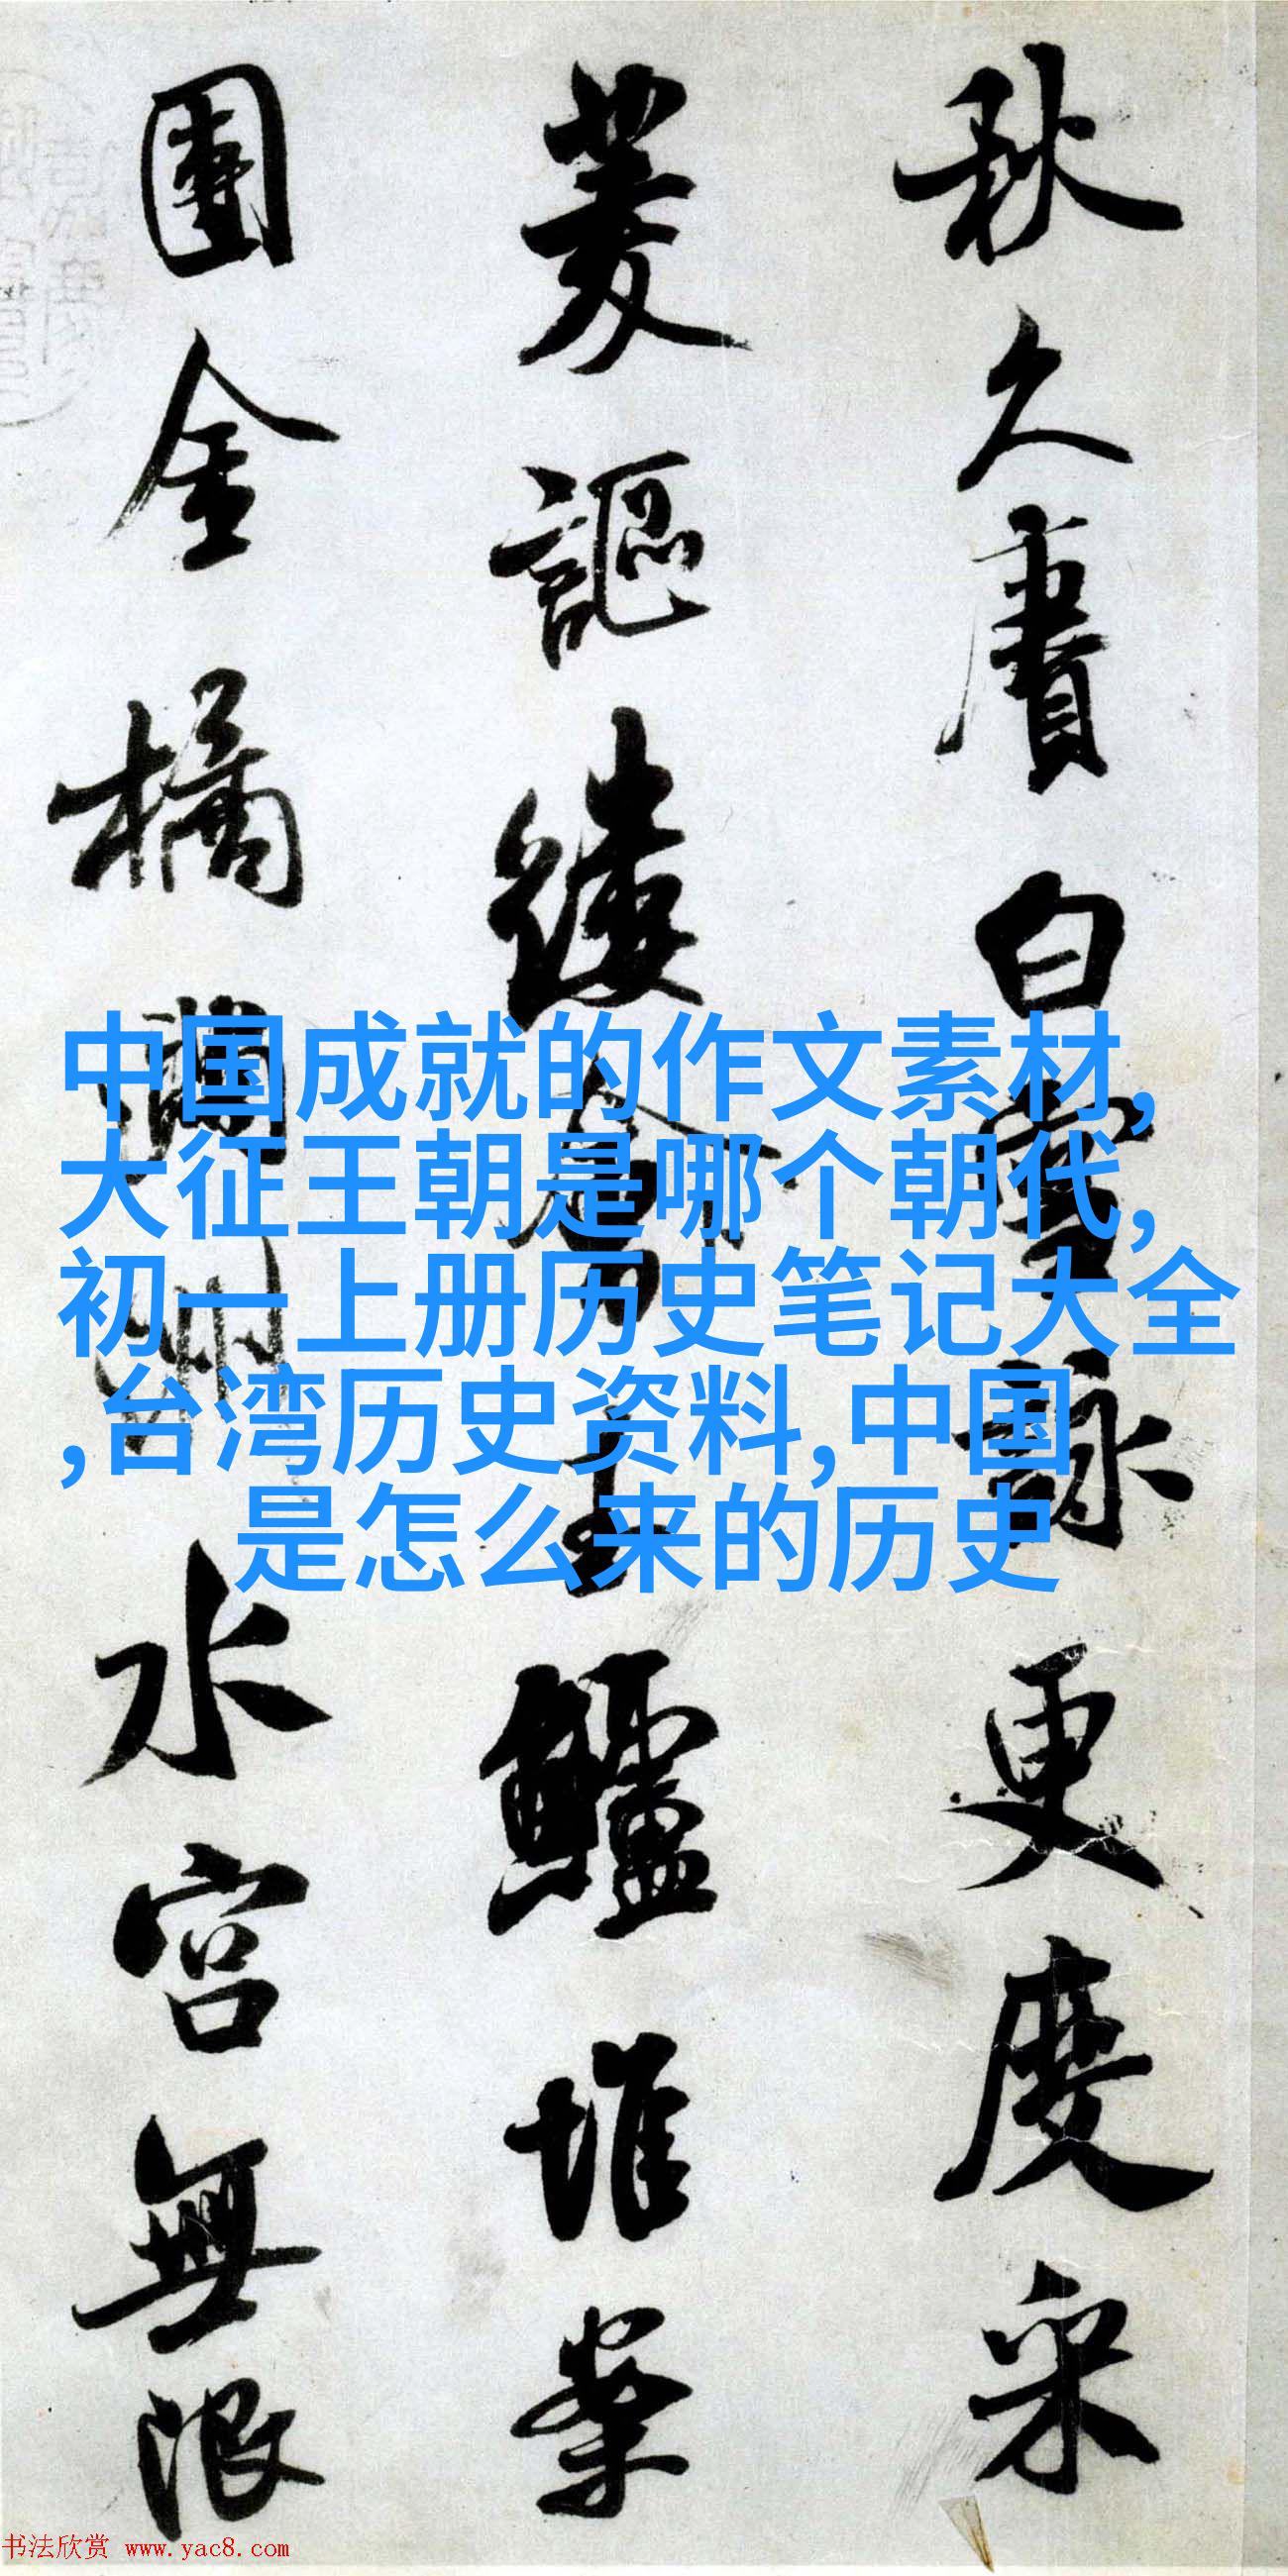 秋久賡白雪詠更度采
菱謳縷會玉鱸堆案
團金橘滿洲水宮無限
中国成就的作文素材,
大征王朝是哪个朝代,
初一上册历史笔记大全
,台湾历史资料,中国
是怎么来的历史
书法欣赏 www.yac8.com